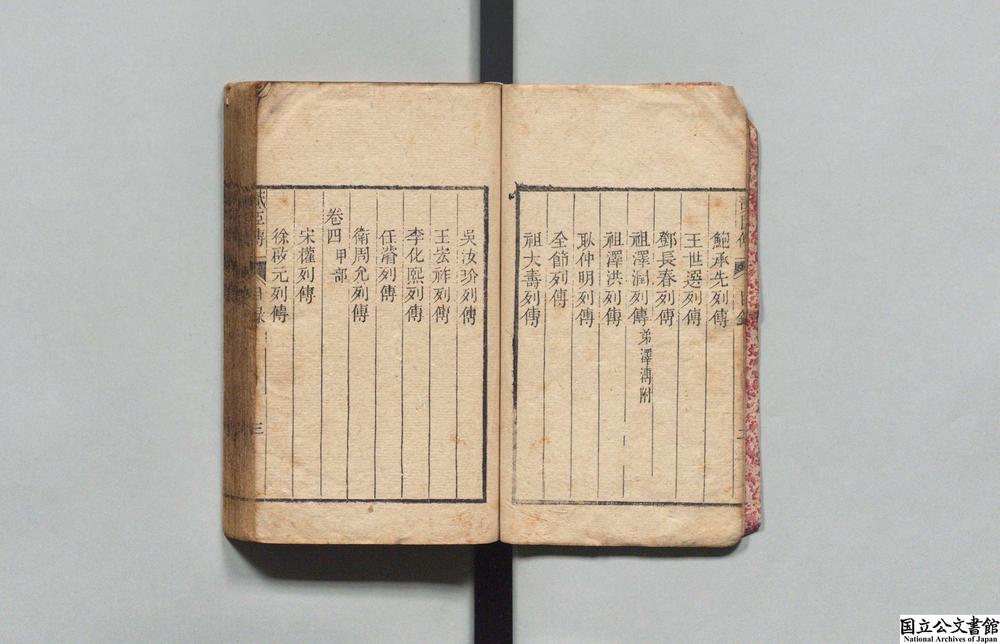 鮑承先列傳
王世選列傳
鄧長春列傳
祖澤潤列傳 弟澤溥附
祖澤洪列傳
耿仲明列傳
全節列傳
祖大壽列傳
吳汝玠列傳
王宏祚列傳
李化熙列傳
任濬列傳
衛周允列傳
卷四 甲部
宋權列傳
徐啟元列傳
貳臣傳 目錄 三
国立公文書館
National Archives of Japan